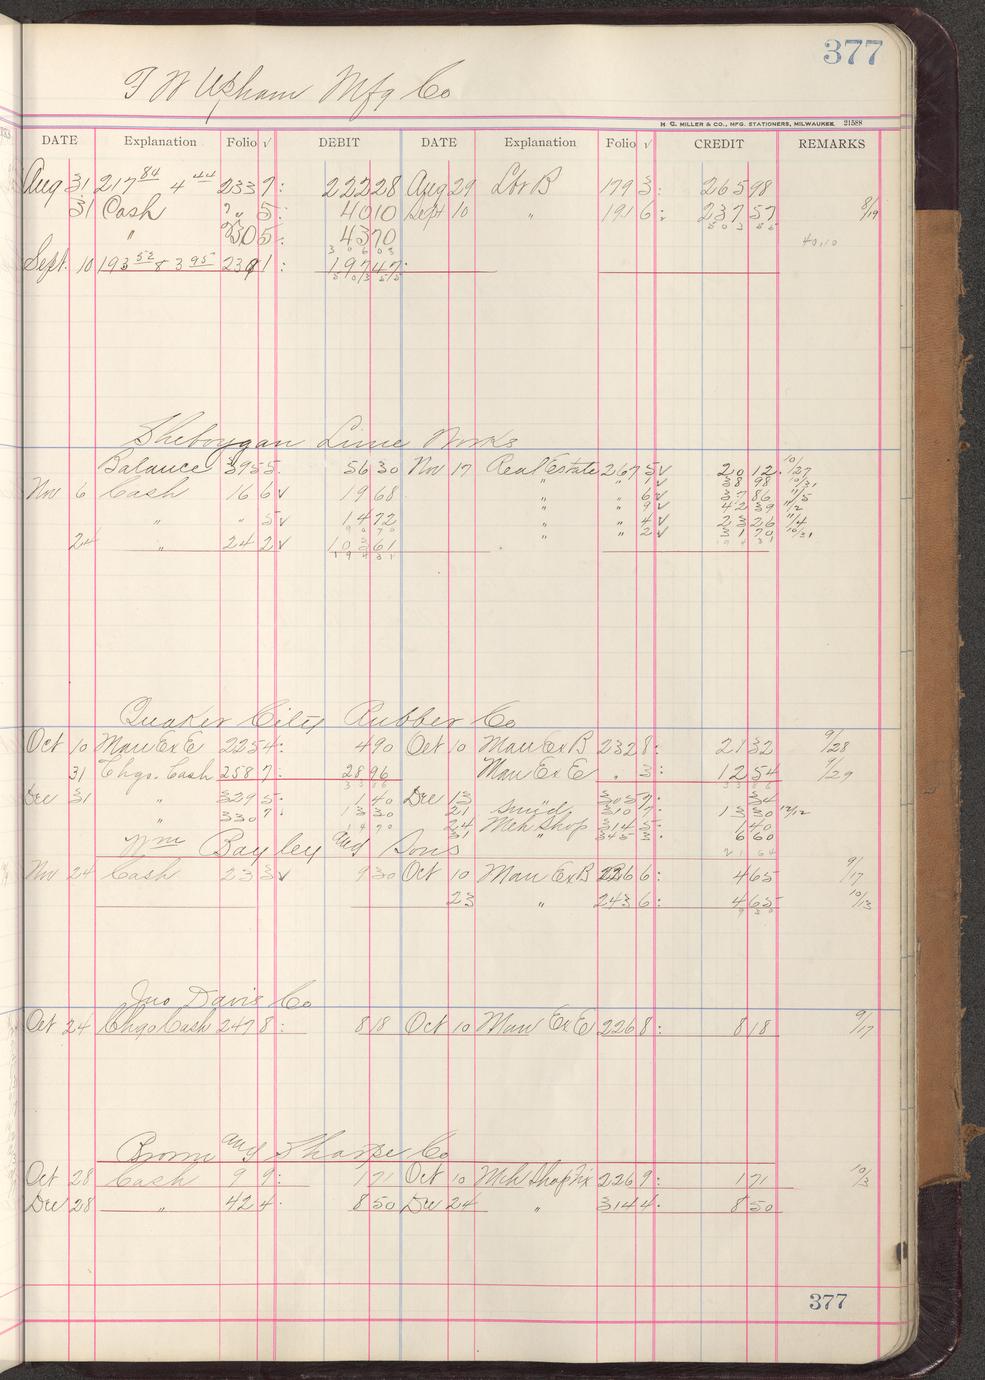 377
F W Upham Mfg Co
H. G. MILLER & CO., MFG. STATIONERS, MILWAUKEE 21588
DATE Explanation Folio √ DEBIT DATE Explanation Folio √ CREDIT REMARKS
Aug 31 217 84 4 44 233 7: 222 28 Aug 29 Lbr B 179 3: 265 98
31 Cash " 5: 40 10 Sept 10 " 191 6: 237 57 8/19
" 230 5: 43 70 503 55
306 08 40.10
Sept. 10 193 52 & 3 95 239 1: 197 47
503 55
Sheboygan Lime Works
Balance 395 5 56 30 Nov 17 Real Estate 267 5√ 20 12 10/27
Nov 6 Cash 16 6√ 19 68 " " 38 98 10/31
" " 6√ 37 86 11/5
" " 5√ 14 72 " " 9√ 42 39 11/2
90 70 " " 4√ 23 26 11/4
24 " 24 2√ 103 61 " " 2√ 31 70 10/31
194 31 194 31
Quaker City Rubber Co
Oct 10 Man Ex E 225 4: 4 90 Oct 10 Man Ex B 232 8: 21 32 9/28
31 Chgo. Cash 258 7: 28 96 Man Ex E " 3: 12 54 9/29
33 86 33 86
Dec 31 " 329 5: 1 40 Dec 13 305 7: 34
" 330 7: 13 30 21 310 7: 13 30 12/12
14 70 24 Mch Shop 314 5: 1 40
31 " 345 3: 6 60
21 64
Wm Bayley and Sons
Nov 24 Cash 23 3√ 9 30 Oct 10 Man Ex B 226 6: 4 65 9/17
23 " 243 6: 4 65 10/13
9 30
Jno Davis Co
Oct 24 Chgo Cash 247 8: 8 18 Oct 10 Man Ex E 226 8: 8 18 9/17
Brown and Sharpe Co
Oct 28 Cash 9 9: 1 71 Oct 10 Mch Shop Fix 226 9: 1 71 10/3
Dec 28 " 42 4: 8 50 Dec 24 " 314 4: 8 50
377